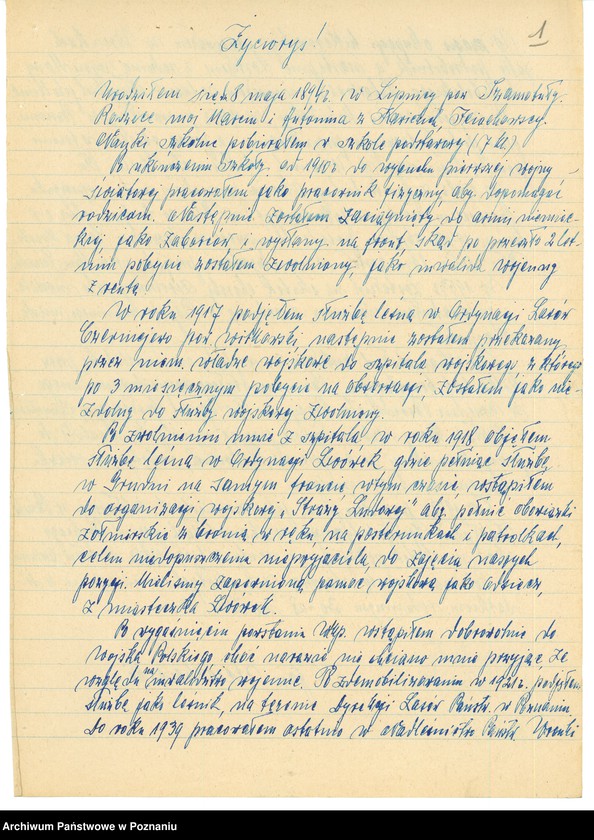 1
Życiorys!
Urodziłem się 8 maja 1894r. w Lipnicy pow. Szamotuły.
Rodzice moi Marcin i Antonina z
Nauki szkolne pobierałem w szkole podstawowej (7 kl.)
Po ukończeniu szkoły od 1910r. do wybuchu pierwszej wojny
światowej pracowałem jako pracownik fizyczny, aby dopomagać
rodzicom. Następnie zostałem zaciągnięty do armii niemiec-
kiej jako zaborców i wysłany na front skąd po przeszło 2 let-
nim pobycie zostałem zwolniony jako inwalida wojenny
z rentą.
W roku 1917 podjąłem służbę leśną w Ordynacji Lasów
Czerniejewo pow. witkowski, następnie zostałem przekazany
przez niem. władze wojskowe do szpitala wojskowego, z którego
po 3 miesięcznym pobycie na obserwacji, zostałem jako nie-
zdolny do służby wojskowej zwolniony.
Po zwolnieniu mnie z szpitala w roku 1918 objąłem
służbę leśną w Ordynacji Lwówek gdzie pełniąc służbę
w Grudni na samym froncie w tym czasie wstąpiłem
do organizacji wojskowej „Straży Ludowej” aby pełnić obowiązki
żołnierskie z bronią w ręku, na posterunkach i patrolkach,
celem niedopuszczenia nieprzyjaciela, do zajęcia naszych
pozycji. Mieliśmy zapewnioną pomoc wojskową jako odziecz,
z miasteczka Lwówek.
Po wygaśnięciu powstania Wlkp. wstąpiłem dobrowolnie do
wojska Polskiego choć narazie nie chciano mnie przyjąć, ze
względu na inwalidztwo wojenne. Po zdemobilizowaniu w 1921r. podjąłem
służbę jako leśnik, na terenie Dyrekcji Lasów Państw. w Poznaniu
Do roku 1939 pracowałem ostatnio w Nadleśnictwie Państw. Wronki
Archiwum Państwowe w Poznaniu